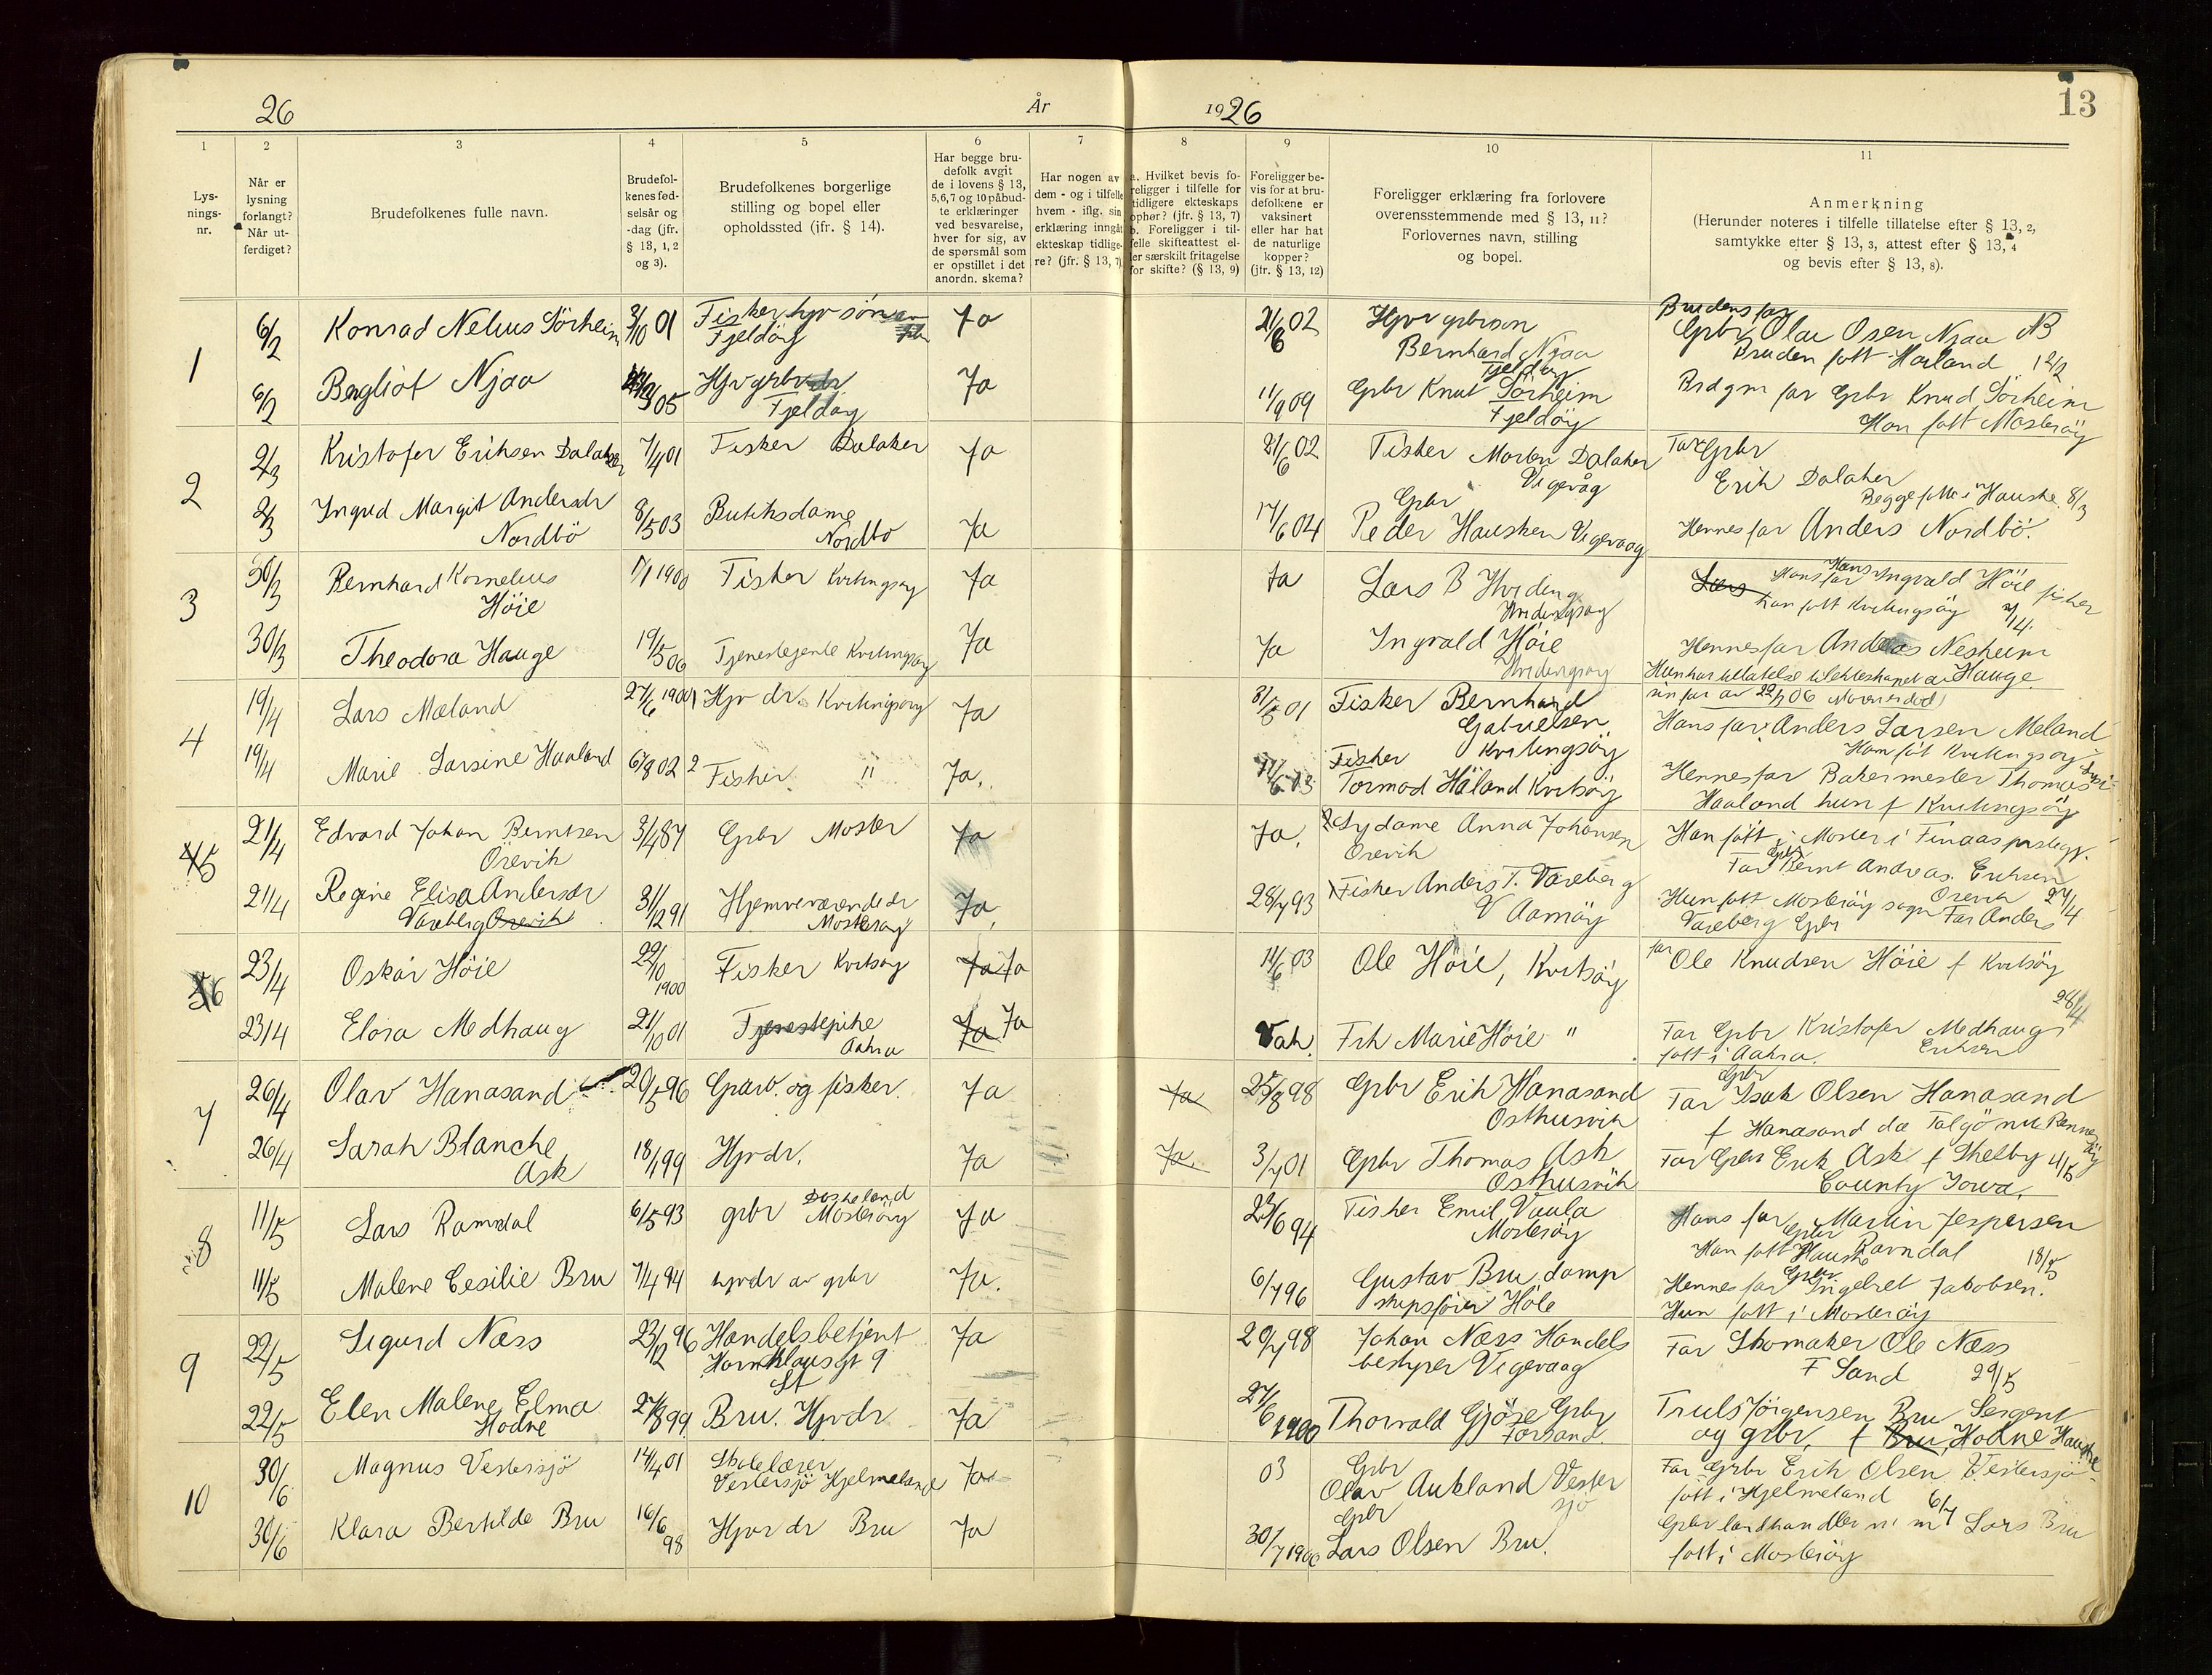 26 År 1926 13
1 2 3 4 5 6 7 8 9 10 11
Lys-
nings-
nr.
Når er
lysning
forlangt?
Når ut-
ferdiget?
Brudefolkenes fulle navn.
Brudefol-
kenes fød-
selsår og
-dag (jfr.
§ 13, 1, 2
og 3).
Brudefolkenes borgerlige
stilling og bopel eller
opholdssted (jfr. § 14).
Har begge bru-
defolk avgit
de i lovens § 13,
5,6,7 og 10 påbud-
te erklæringer
ved besvarelse,
hver for sig, av
de spørsmål som
er opstillet i det
anordn. skema?
Har nogen av
dem - og i tilfelle
hvem - iflg. sin
erklæring inngåt
ekteskap tidlige-
re? (jfr. § 13, 7)
a. Hvilket bevis fo-
religger i tilfelle for
tidligere ekteskaps
ophør? (jfr. § 13, 7)
b. Foreligger i til-
felle skifteattest el-
ler særskilt fritagelse
for skifte? (§ 13, 9)
Foreligger be-
vis for at bru-
defolkene er
vaksinert
eller har hat
de naturlige
kopper?
(jfr. § 13, 12)
Foreligger erklæring fra forlovere
overensstemmende med § 13, 11?
Forlovernes navn, stilling
og bopel.
Anmerkning
(Herunder noteres i tilfelle tillatelse efter § 13, 2,
samtykke efter § 13, 3, attest efter § 13, 4
og bevis efter § 13, 8).
1
6/2 Konrad Nelius Sörheim 3/10 01 Fisker hjv sön Fjeldöy Ja 21/6 02 Hjv grbrsøn Bernhard Njaa Fjeldöy
Brudens far
Grbr Olau Osen Njaa NB
Bruden fött Harland 12/2
6/2 Bergliot Njaa 05 Hjv grbr dr Fjeldöy Ja 11/9 09 Grbr Knut Sörheim Fjeldöy
Brdgm far Grbr Knud Sörheim
Han fött Mosteröy
2
2/3 Kristofer Eriksen Dalaker 7/4 01 Fisker Dalaker Ja 21/6 02 Fisker Morten Dalaker Vigevåg
Far Grbr
Erik Dalaker
Begge fötte i Hauske 8/3
2/3 Ingrid Margit Andersdr Nordbö 8/5 03 Butiksdame Nordbö Ja 17/6 04 Grbr Peder Hausken Vigevaag
Hennes far Anders Nordbö.
3
30/3 Bernhard Kornelius Höie 1/1 1900 Fisker Kvitingsöy Ja Ja Lars B Hviding Hvidingsöy
Lars Hans far Ingvald Höie fisker
han fött Kvitingsöy 7/4.
30/3 Theodora Hauge 19/5 06 Tjenestejente Kvitingsöy Ja Ja Ingvald Höie Hvidingsöy
Hennes far Andreas Nesheim
Hun har tillatelse til ekteskapet av Hauge
sin far av 22/ 06 Moren er död
4
19/4 Lars Mæland 27/6 1900 1 Hjv dr. Kvitingsöy Ja 31/5 01 Fisker Bernhard Gabrielsen Kvitingsöy
Hans far Anders Larsen Meland
Han föt Kvitingsöy
19/4 Marie Larsine Haaland 6/8 02 2 Fisker " Ja. 03 Fisker Tormod Håland Kvitsöy
Hennes far Bakermester Thomas
Haaland hun f Kvitingsöy
5
21/4 Edvard Johan Berntsen Örevik 3/4 87 Grbr Moster Ja Ja. 2 Sydame Anna Johansen Örevik
Han fött i Moster i Finaas prstegj.
Far Grbr Bernt Andreas Eriksen
Örevik 27/4
21/4 Regine Elisa Andersdr Vareberg Örevik 31/12 91 Hjemmeværende dr Mosteröy Ja, 28/7 93 1 Fisker Anders T. Vareberg V Aamöy
Hun fött Mosteröy sogn Far Anders
Vareberg Grbr
6
23/4 Oskar Höie 22/10 1900 Fisker Kvitsöy Ja Ja 14/6 03 Ole Höie, Kvitsöy
far Ole Knudsen Höie f Kvitsöy
28/4
23/4 Elora Medhaug 21/10 01 Tjenestepike Aakra Ja Ja Vak. Frk Marie Höie "
Far Grbr Kristofer Medhaug
fött i Aakra. Eriksen
7
26/4 Olav Hanasand 20/5 96 Gaarb. og fisker. Ja Ja 25/8 98 Grbr Erik Hanasand Östhusvik
Far Grbr Isak Olsen Hanasand
f Hanasand da Talgö nu Rennesöy
26/4 Sarah Blanche Ask 18/1 99 Hjvdr. Ja Ja. 3/7 01 Grbr Thomas Ask Östhusvik
Far Grbr Erik Ask f Shelby 4/5
County Iowa.
8
11/5 Lars Ramndal 6/5 93 grbr Mosteröy Ja 23/6 94 Fisker Emil Vaula Mosteröy
Hans far Grbr Martin Jespersen
Han fött Hauske Ravndal 18/5
11/5 Malene Cesilie Bru 7/4 94 hjvdr av grbr Ja. 6/7 96 Gustav Bru damp skipsförer Höle
Hennes far Grbr Ingebret Jakobsen.
Hun fött i Mosteröy
9
22/5 Sigurd Næss 23/12 96 Handelsbetjent Hornklausgt 9 St Ja 20/7 98 Johan Næss Handels bestyrer Vigevaag
Far Skomaker Ole Næss
F Sand 29/5
22/5 Elen Malene Elma Hodne 27/8 99 Bru. Hjvdr Ja 27/6 1900 Thorvald Gjöse Grbr Forsand.
Truls Jörgensen Bru Sergent
og grbr, f Bru Hodne Hauske
10
30/6 Magnus Vestersjö 14/4 01 Skolelærer Vestersjö Hjelmeland Ja 03 Grbr Olav Aukland Vestersjö
Far Grbr Erik Olsen Vestersjö
fött i Hjelmeland 6/7
30/6 Klara Bertilde Bru 16/6 98 Hjv dr Bru Ja 30/7 1900 Grbr Lars Olsen Bru.
Grbr landhandler m m Lars Bru
fött i Mosteröy